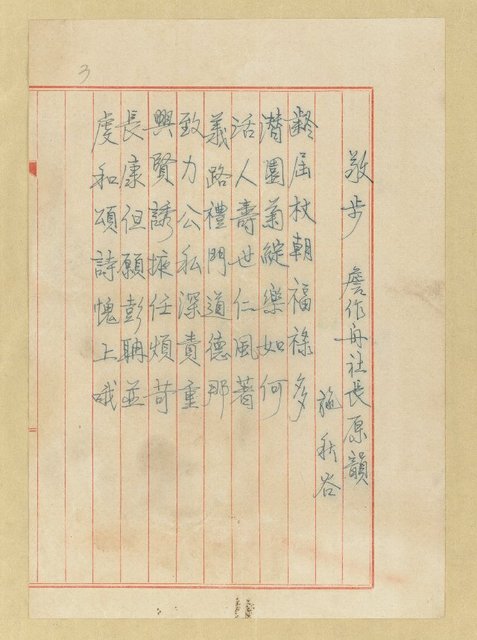 敬步 詹作舟社長原韻
施秋谷
齡屆杖朝福祿多
潛園菊綻樂如何
活人壽世仁風著
義路禮門道德那
致力公私深責重
興賢誘掖任煩苛
長康但願彭聃並
虔和頌詩愧上哦
3